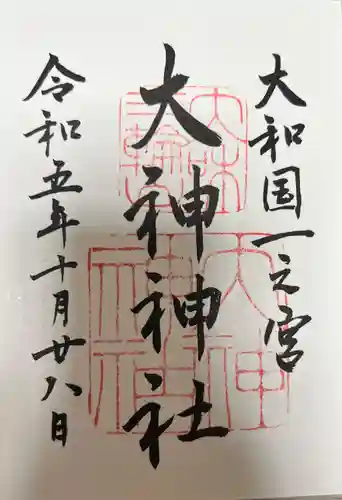 大和国一之宮
大神神社
令和五年十月廿八日